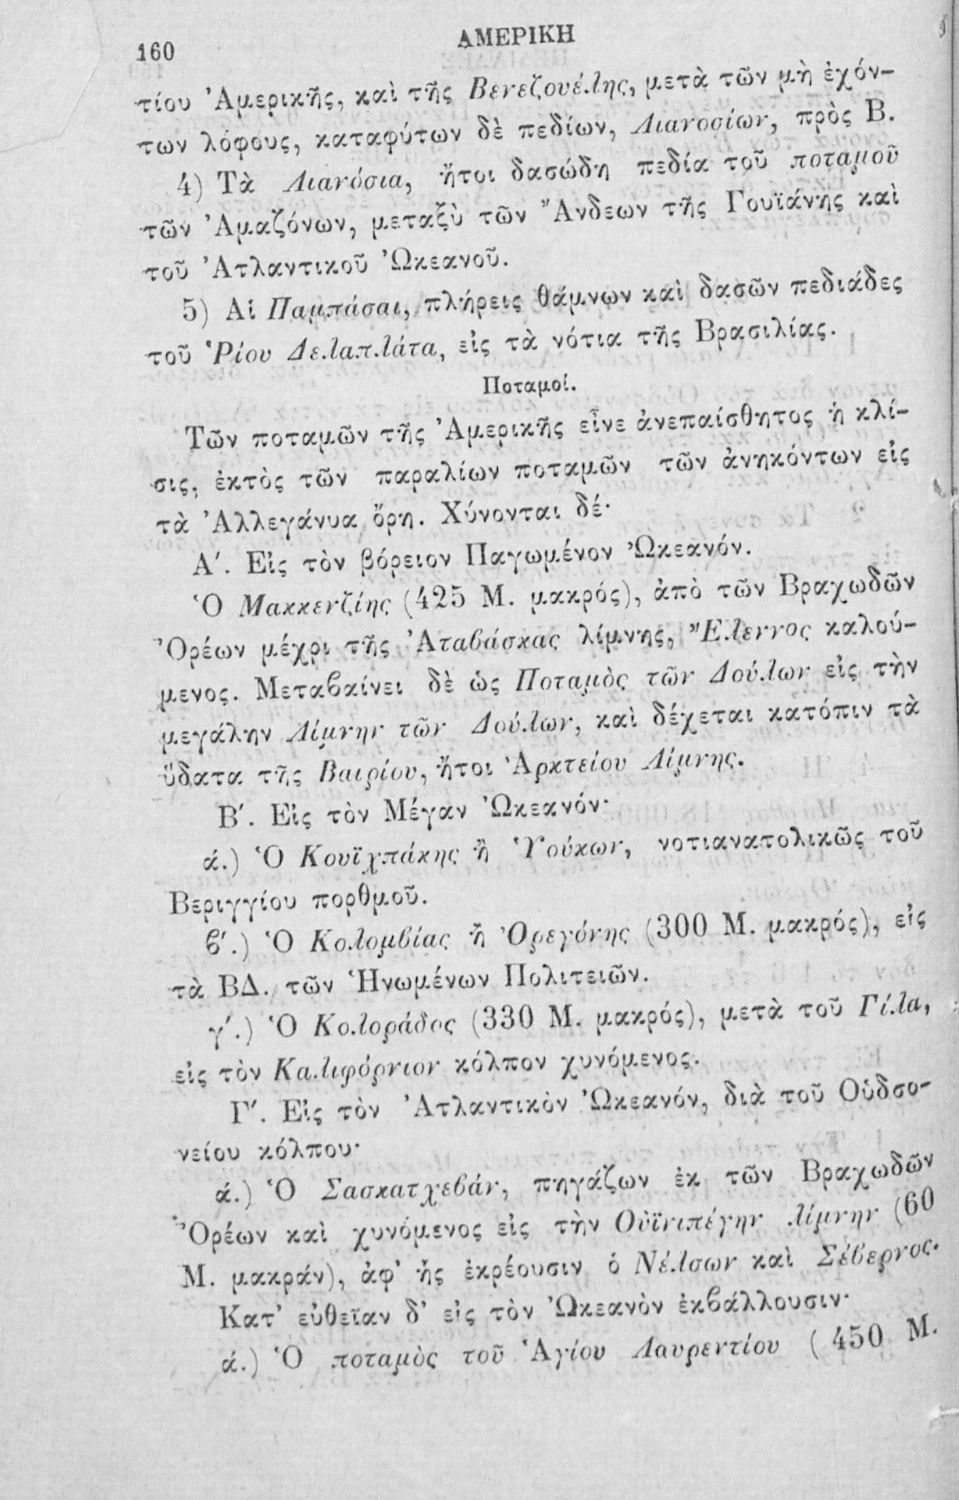 160
ΑΜΕΡΙΚΗ
τίου Ἀμερικῆς, καὶ τῆς Βενεζουέλης, μετὰ τῶν μὴ ἐχόν-
των λόφους, καταφύτων δὲ πεδίων, Λιανοσίων, πρὸς Β.
4) Τὰ Λιανόσια, ἤτοι δασώδη πεδία τοῦ ποταμοῦ
τῶν Ἀμαζόνων, μεταξὺ τῶν Ἄνδεων τῆς Γουϊάνης καὶ
τοῦ Ἀτλαντικοῦ Ὠκεανοῦ.
5) Αἱ Παμπάσαι, πλήρεις θάμνων καὶ δασῶν πεδιάδες
τοῦ Ῥίου Δελαπλάτα, εἰς τὰ νότια τῆς Βρασιλίας.
Ποταμοί.
Τῶν ποταμῶν τῆς Ἀμερικῆς εἶνε ἀνεπαίσθητος ἡ κλί-
σις, ἐκτὸς τῶν παραλίων ποταμῶν τῶν ἀνηκόντων εἰς
τὰ Ἀλλεγάνυα ὄρη. Χύνονται δέ·
Α′. Εἰς τὸν βόρειον Παγωμένον Ὠκεανόν.
Ὁ Μακκενζίης (425 Μ. μακρός), ἀπὸ τῶν Βραχωδῶν
Ὀρέων μέχρι τῆς Ἀταβάσκας λίμνης, Ἔλεννος καλού-
μενος. Μεταβαίνει δὲ ὡς Ποταμὸς τῶν Δούλων εἰς τὴν
μεγάλην Λίμνην τῶν Δούλων, καὶ δέχεται κατόπιν τὰ
ὕδατα τῆς Βαιρίου, ἤτοι Ἀρκτείου Λίμνης.
Β′. Εἰς τὸν Μέγαν Ὠκεανόν·
ά.) Ὁ Κουϊχπάκης ἢ Ὑούκων, νοτιανατολικῶς τοῦ
Βεριγγίου πορθμοῦ.
β′.) Ὁ Κολομβίας ἢ Ὀρεγόνης (300 Μ. μακρός), εἰς
τὰ ΒΔ. τῶν Ἡνωμένων Πολιτειῶν.
γ′.) Ὁ Κολοράδος (330 Μ. μακρός), μετὰ τοῦ Γίλα,
εἰς τὸν Καλιφόρνιον κόλπον χυνόμενος.
Γ′. Εἰς τὸν Ἀτλαντικὸν Ὠκεανόν, διὰ τοῦ Οὑδσο-
νείου κόλπου·
ά.) Ὁ Σασκατχεβάν, πηγάζων ἐκ τῶν Βραχωδῶν
Ὀρέων καὶ χυνόμενος εἰς τὴν Οὐϊνιπέγην λίμνην (60
Μ. μακράν), ἀφ' ἧς ἐκρέουσιν ὁ Νέλσων καὶ Σέβερνος.
Κατ' εὐθεῖαν δ' εἰς τὸν Ὠκεανὸν ἐκβάλλουσιν·
ά.) Ὁ ποταμὸς τοῦ Ἁγίου Λαυρεντίου (450 Μ.